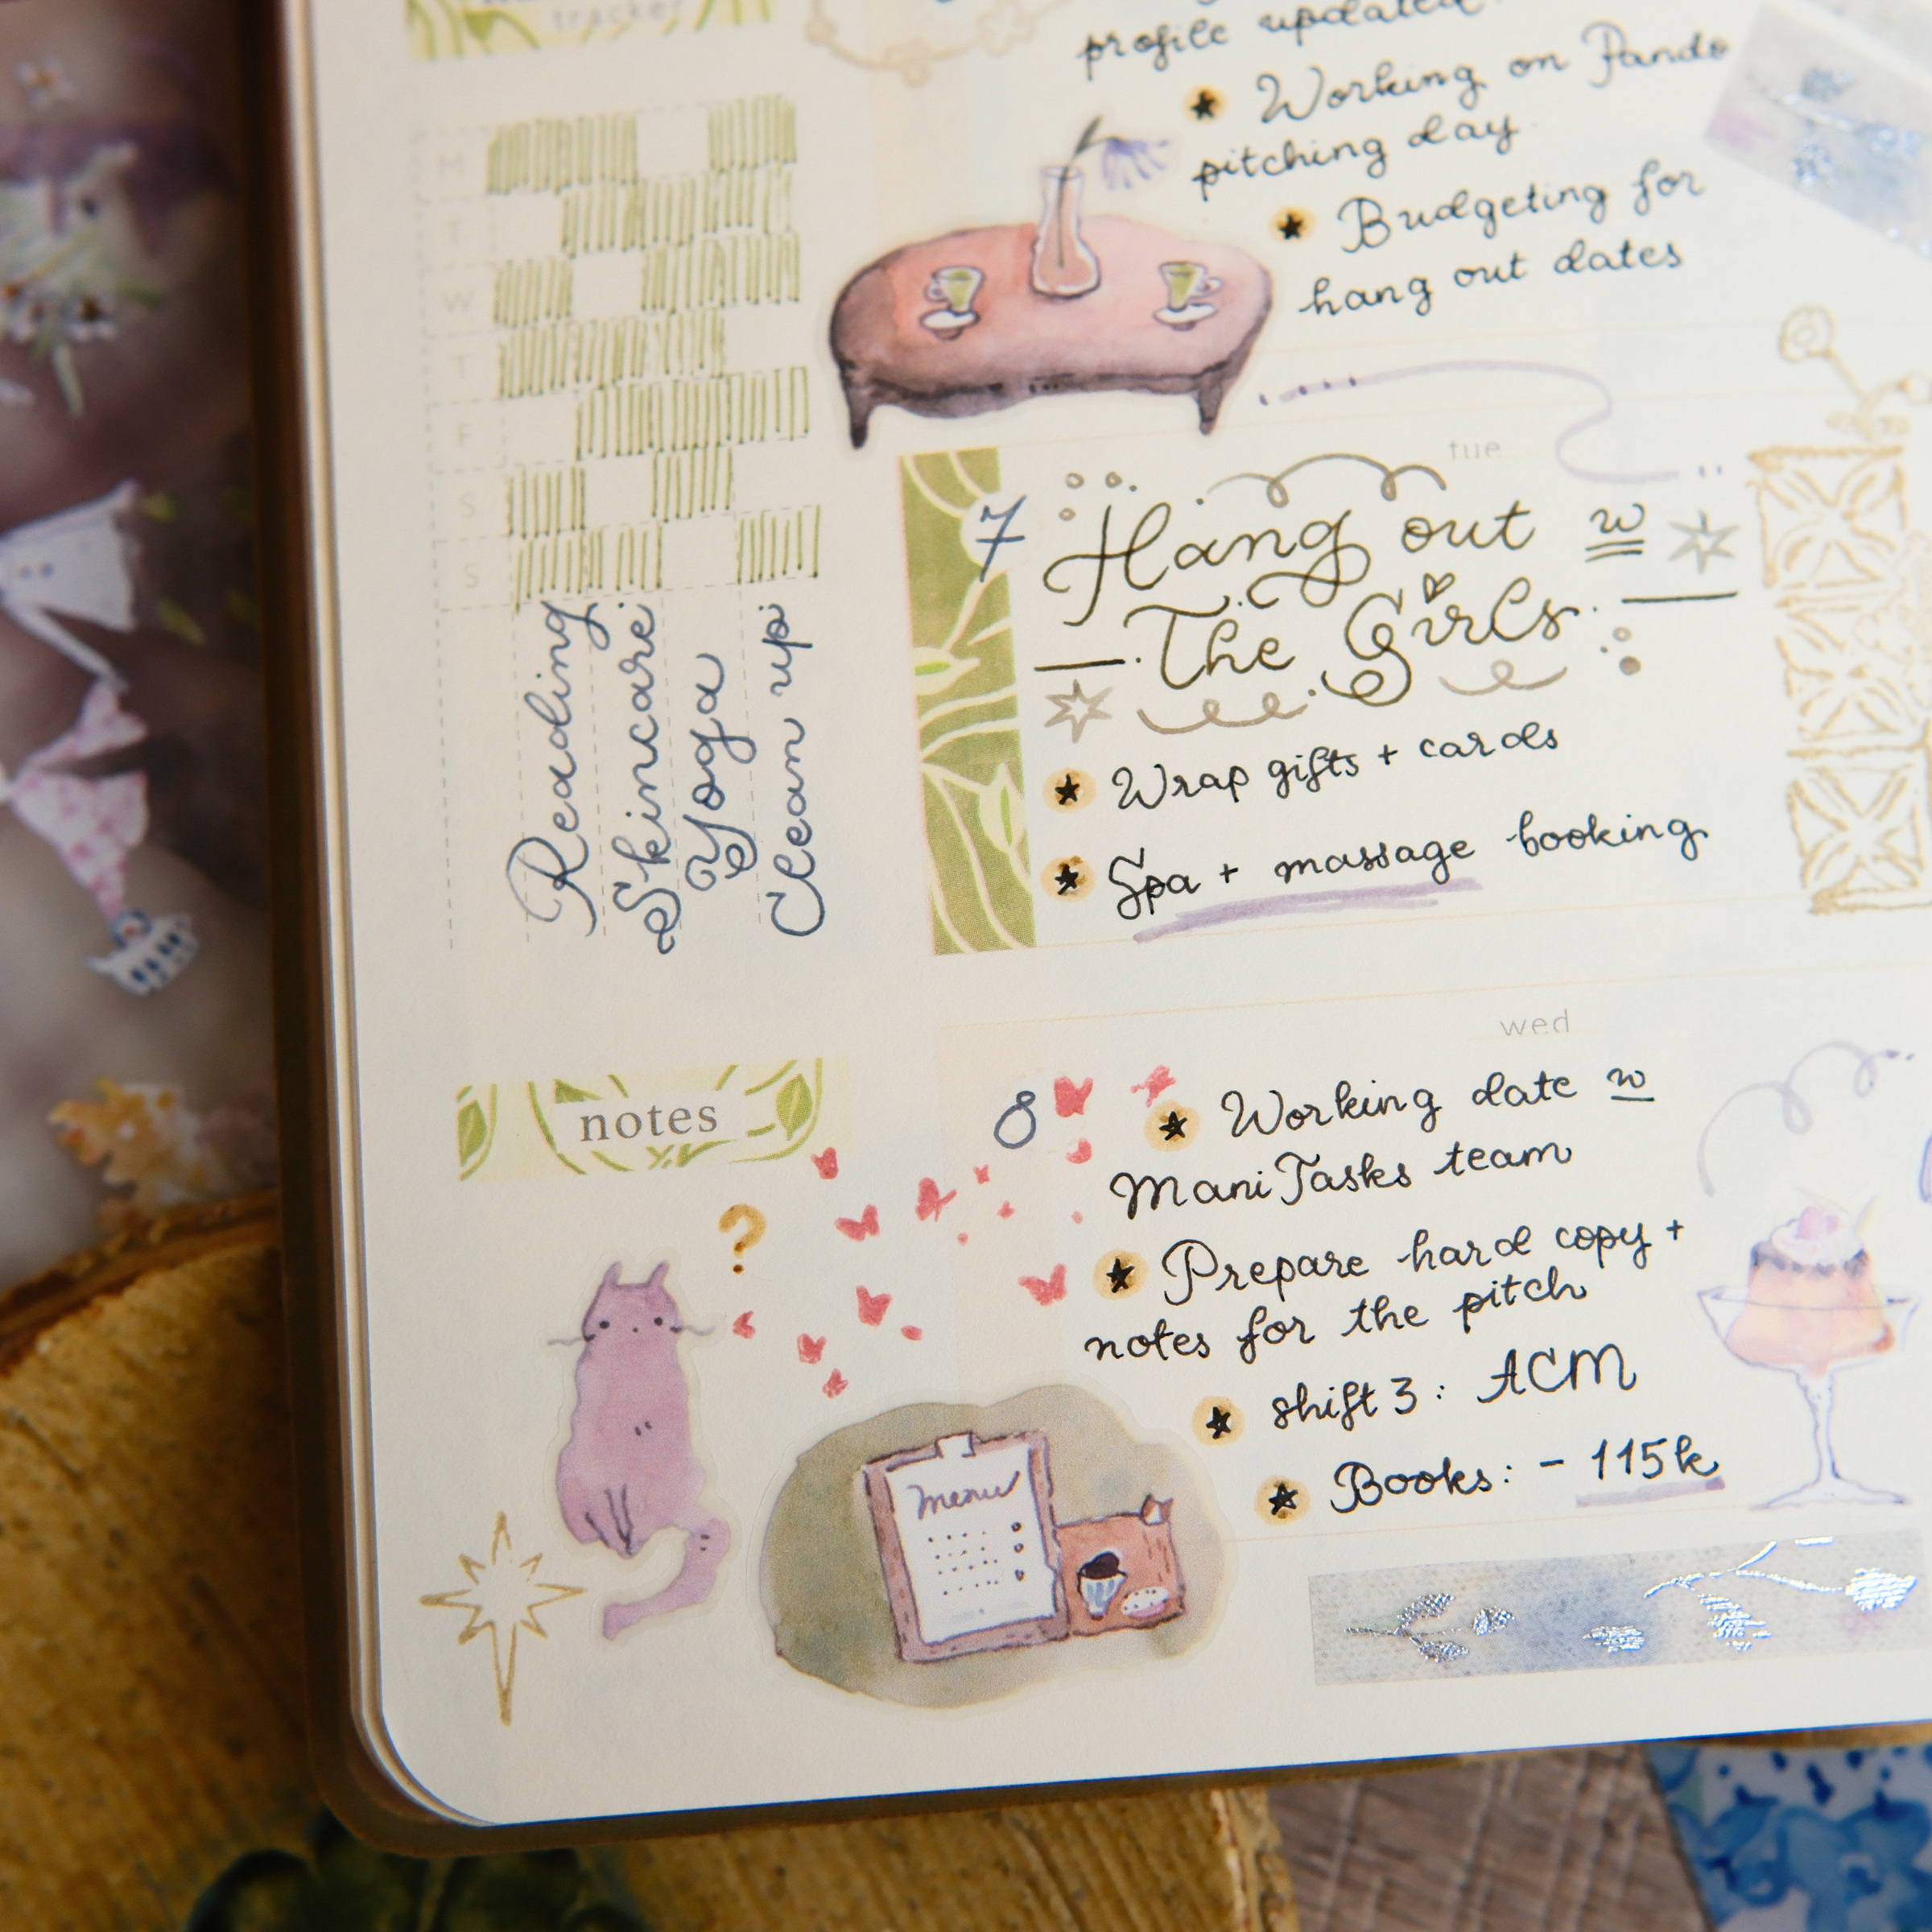 tracker
M
T
W
T
F
S
S
Reading
Skincare
Yoga
Clean up
notes
?
menu
profile updated.
★ Working on Pando
pitching day.
★ Budgeting for
hang out dates
tue
7
Hang out w
The Girls
★ Wrap gifts + cards
★ Spa + massage booking
wed
8
★ Working date w
ManiTasks team
★ Prepare hard copy +
notes for the pitch
★ shift 3: ACM
★ Books: - 115k